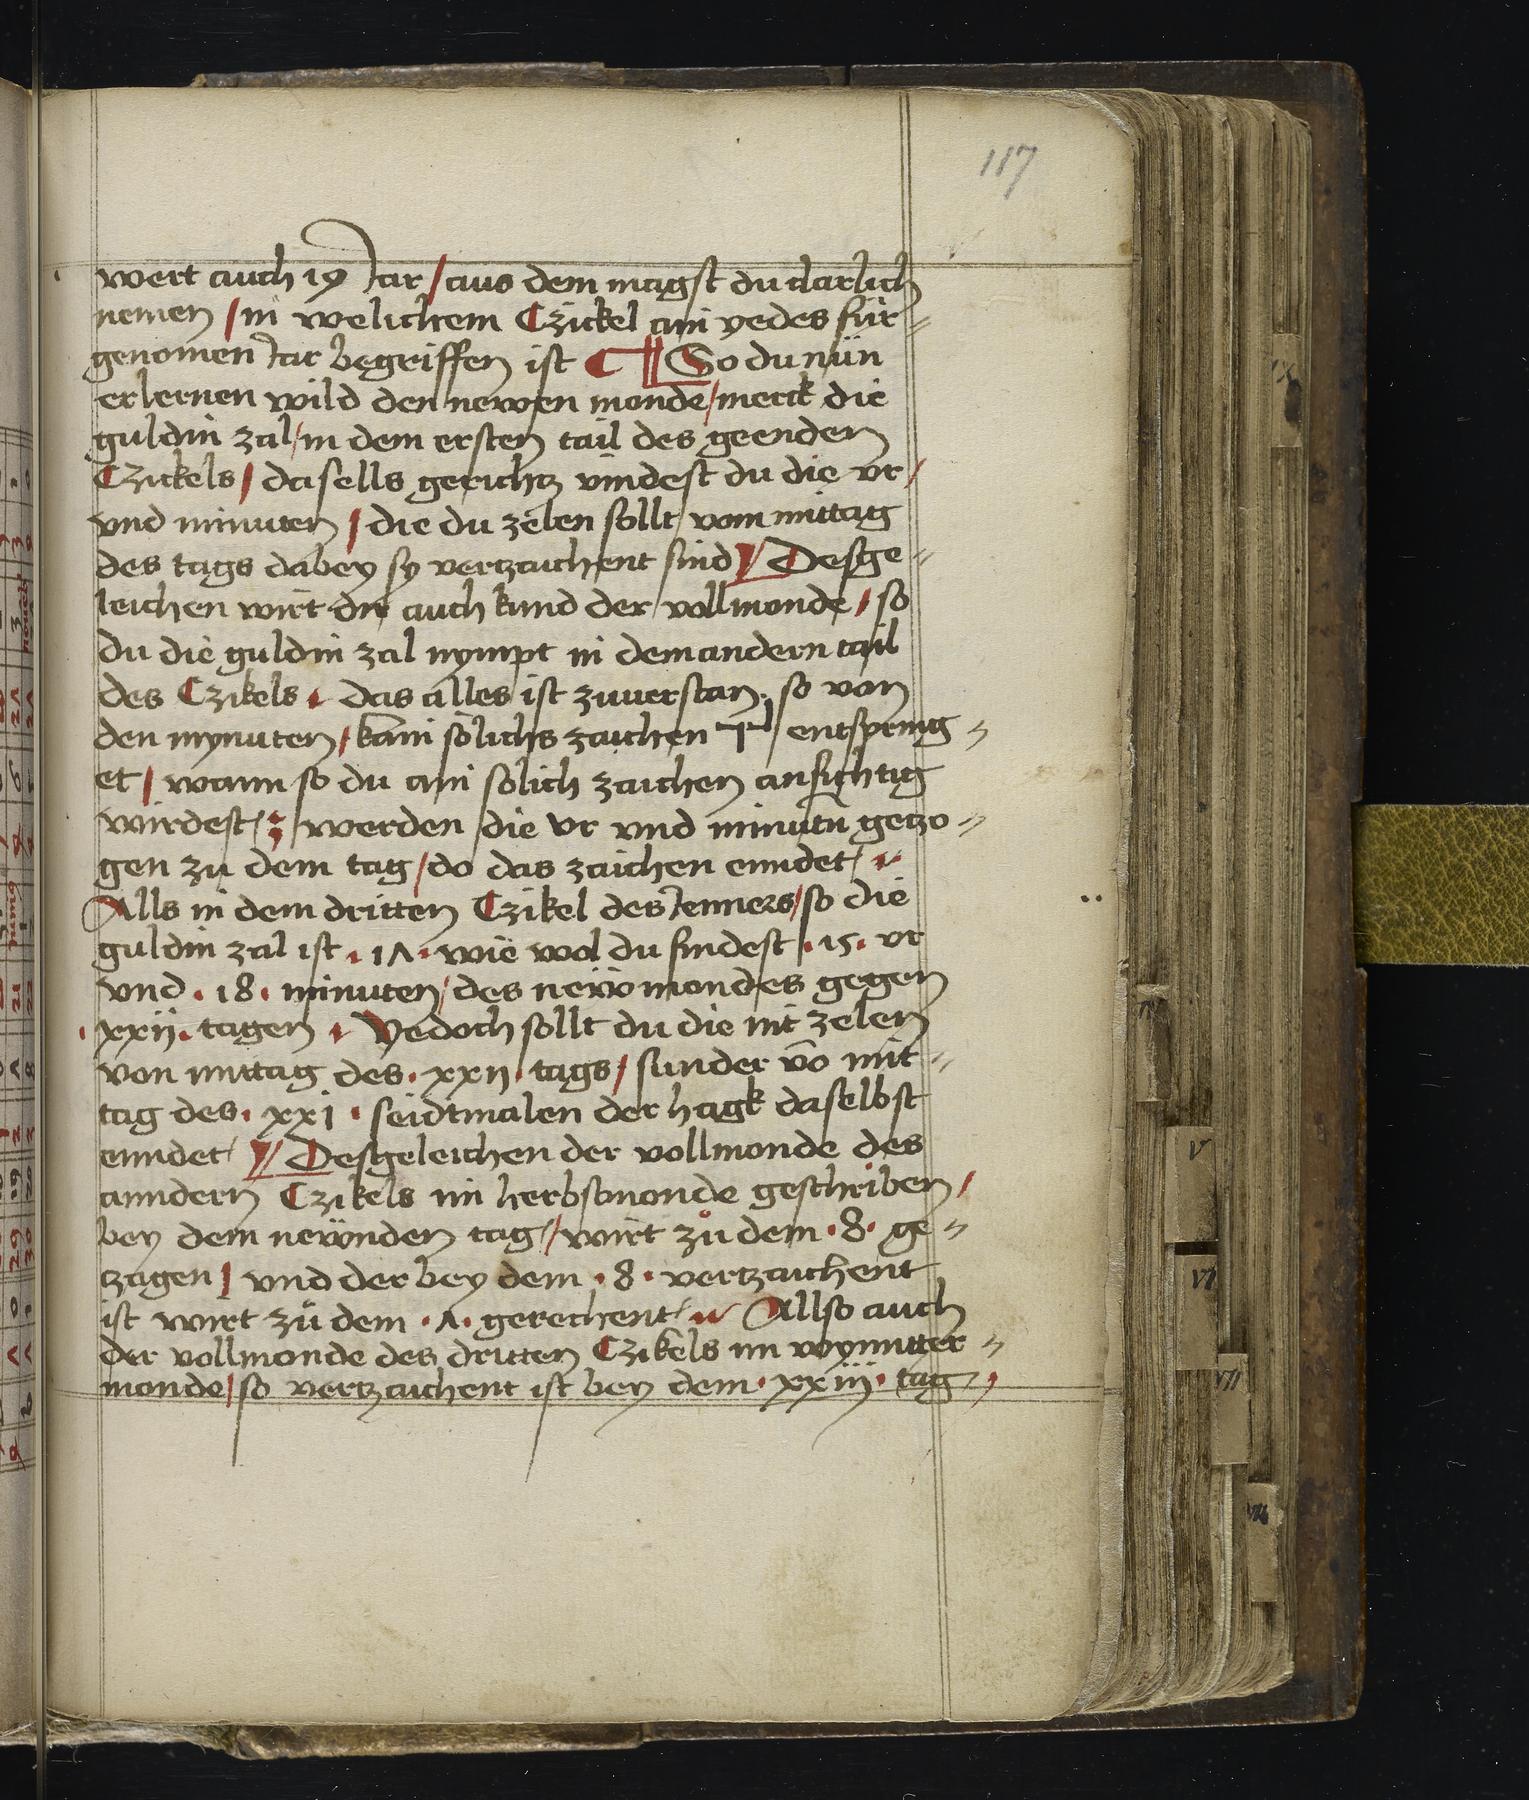 117
wert auch 19 Jar / aus dem magst du clarlich
nemen / in welichem Czickel ain yedes für=
genomen Jar begriffen ist ¶ So du nün
erlernen wild den newen monde / merck die
guldin zal / in dem ersten tail des geenden
Czickels / dasells gerichtz vindest du die vr /
vnd minuten / die du zelen sollt / vom mittag
des tags dabey sy vertzaichent sind // Desge=
leichen wirt dir auch kund der vollmonde / so
du die guldin zal nympt in dem andern tail
des Czikels · das alles ist zuuerstan · so von
den mynuten / kain sölichs zaichen entspring=
et / wann so du ain solich zaichen ansichtig
wirdest / werden die vr vnd minuten getzo=
gen zu dem tag / do das zaichen enndet ·
Alls in dem dritten Czikel des Jenners / so die
guldin zal ist · 1Λ · wie wol du findest · 15 · vr
vnd · 18 · minuten / des newmondes gegen
xxij · tagen · Yedoch sollt du die nit zelen
von mittag des · xxij · tags / sunder vo mit=
tag des · xxj · seidtmalen der hagk daselbst
enndet // Desgeleichen der vollmonde des
anndern Czikels im herbstmonde geschriben /
bey dem newnden tag / wirt zů dem · 8 · ge=
zagen / vnd der bey dem · 8 · vertzaichent
ist wirt zů dem · Λ · gerechent · Allso auch
der vollmonde des dritten Czikels im wynntter=
monde / so vertzaichent ist bey dem · xxiij · tag /
IX
V
VI
VII